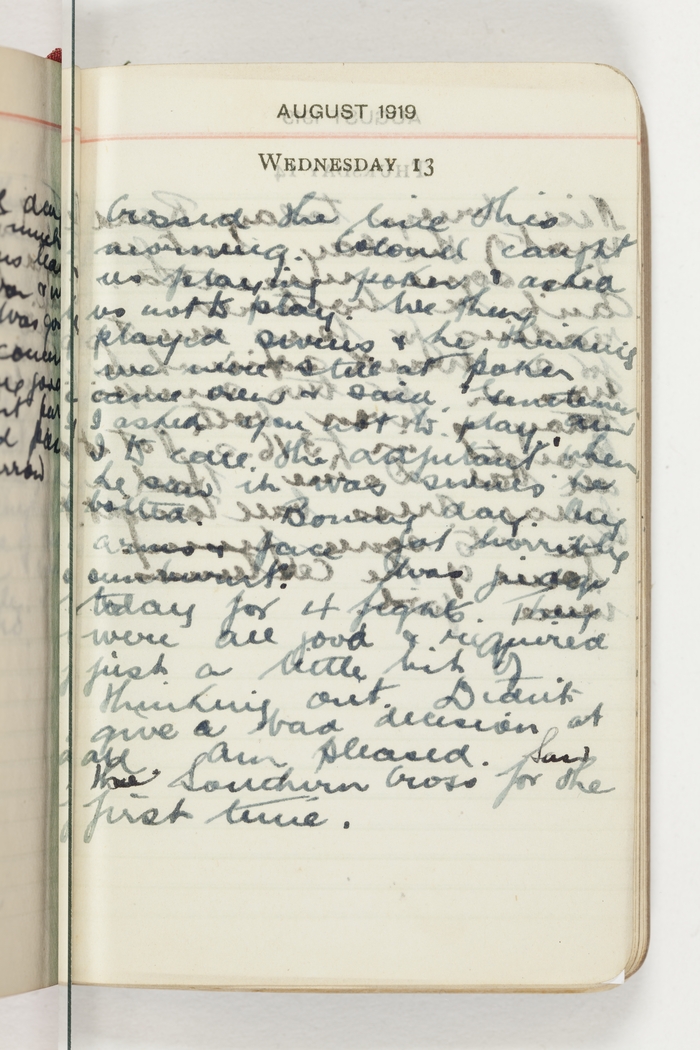 AUGUST 1919
WEDNESDAY 13
Crossed the line this
morning. Colonel caught
us playing poker & asked
us not to play. We then
played sevens & he thinking
we were still at poker
came over & said "Gentlemen
I asked you not to play. Am
I to call the adjutant" when
he saw it was sevens he
bolted. Boxing day. My
arms & face got horribly
sunburnt. Was judge
today for 4 fights. They
were all good & required
just a little bit of
thinking out. Didn't
give a bad decision at
all. Am pleased. Saw
the Southern Cross for the
first time.